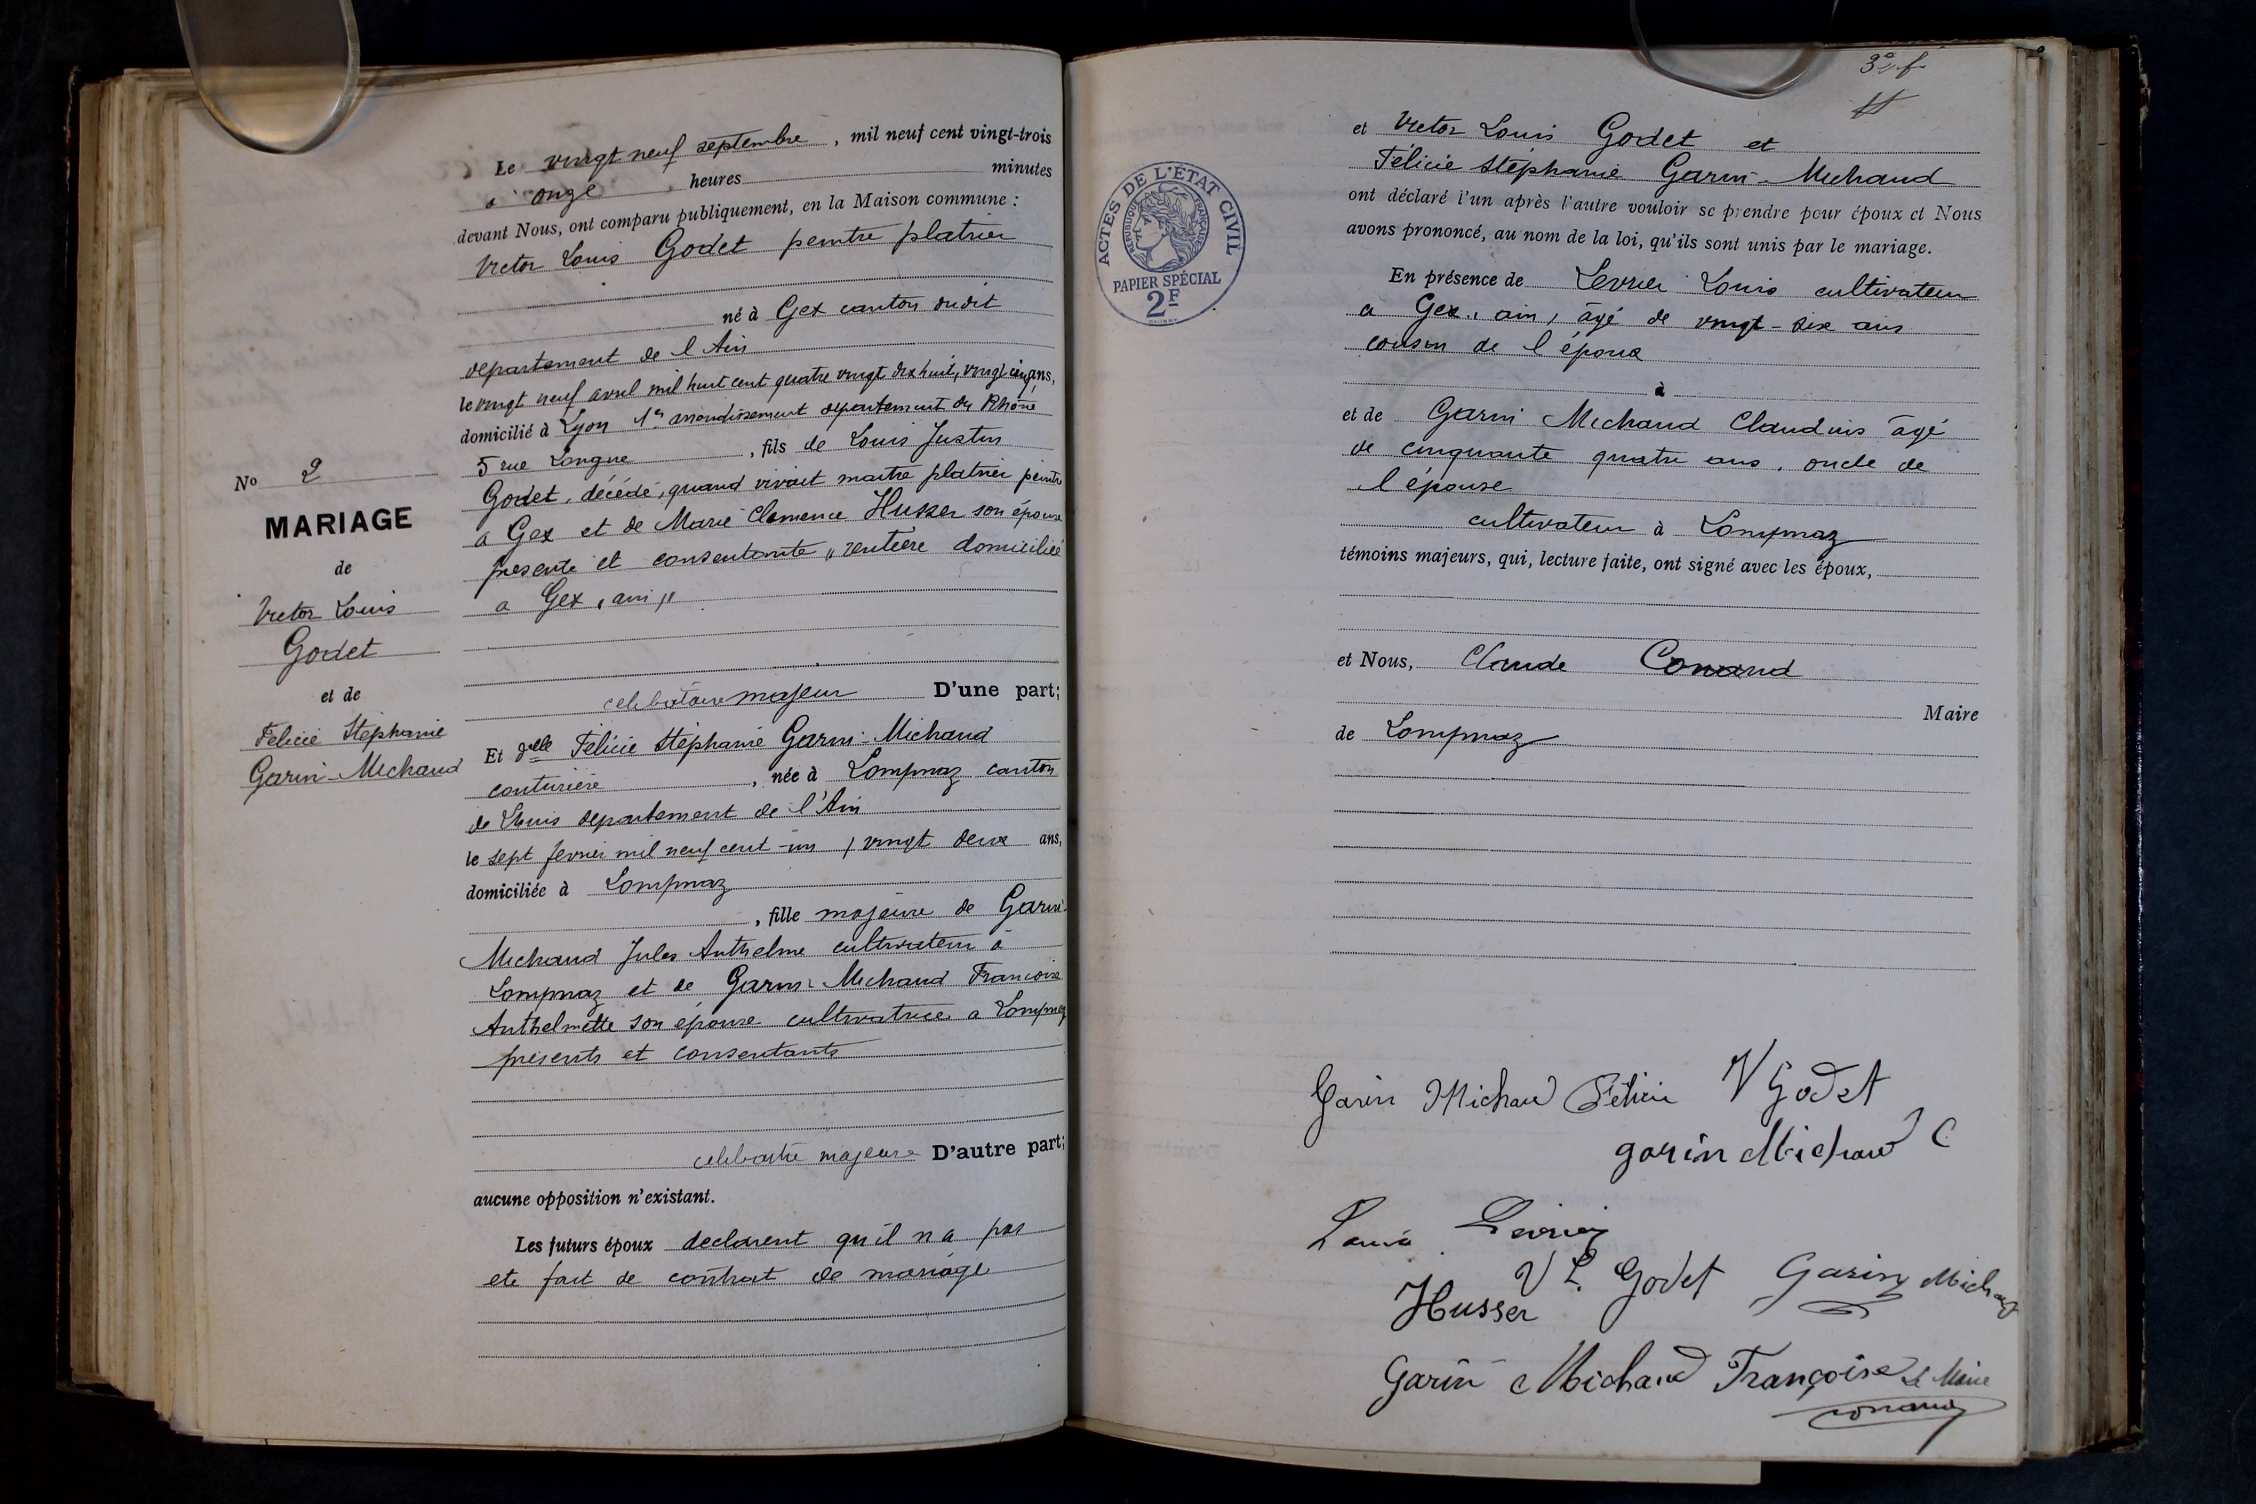 Le vingt neuf septembre, mil neuf cent vingt-trois
à onze heures minutes
devant Nous, ont comparu publiquement, en la Maison commune :
Victor Louis Godet peintre platrier
né à Gex canton dudit
departement de l Ain
le vingt neuf avril mil huit cent quatre vingt dix huit, vingt cinq ans,
domicilié à Lyon 1er arrondissement departement du Rhône
5 rue Longue, fils de Louis Justin
Godet, décédé, quand vivait maitre platrier peintre
a Gex et de Marie Clemence Husser son épouse
presente et consentante, rentière domiciliée
a Gex, ain,
celibataire majeur D'une part;
No 2
MARIAGE
de
Victor Louis
Godet
et de
Félicie Stéphanie
Garin-Michaud
Et Delle Félicie Stéphanie Garin-Michaud
couturière, née à Lompnaz canton
de Lhuis departement de l'Ain
le sept fevrier mil neuf cent un, vingt deux ans,
domiciliée à Lompnaz
, fille majeure de Garin-
Michaud Jules Anthelme cultivateur à
Lompnaz et de Garin-Michaud Francoise
Anthelmette son épouse cultivatrice a Lompnaz
présents et consentants
celibataire majeure D'autre part;
aucune opposition n'existant.
Les futurs époux declarent qu'il n a pas
ete fait de contrat de mariage
3e f.
et Victor Louis Godet et
Félicie Stéphanie Garin-Michaud
ont déclaré l'un après l'autre vouloir se prendre pour époux et Nous
avons prononcé, au nom de la loi, qu'ils sont unis par le mariage.
ACTES DE L'ÉTAT CIVIL
RÉPUBLIQUE FRANÇAISE
PAPIER SPÉCIAL
2F
En présence de Levrier Louis cultivateur
a Gex, ain, âgé de vingt-six ans
cousin de l époux
à
et de Garin Michaud Claudius âgé
de cinquante quatre ans, oncle de
l épouse
cultivateur à Lompnaz
témoins majeurs, qui, lecture faite, ont signé avec les époux,
et Nous, Claude Conand
Maire
de Lompnaz
Garin Michaud Félicie V Godet
garin Michaud C
Louis Levrier
V L Godet Garin Michaud
Husser
Garin Michaud Françoise Le Maire
Conand